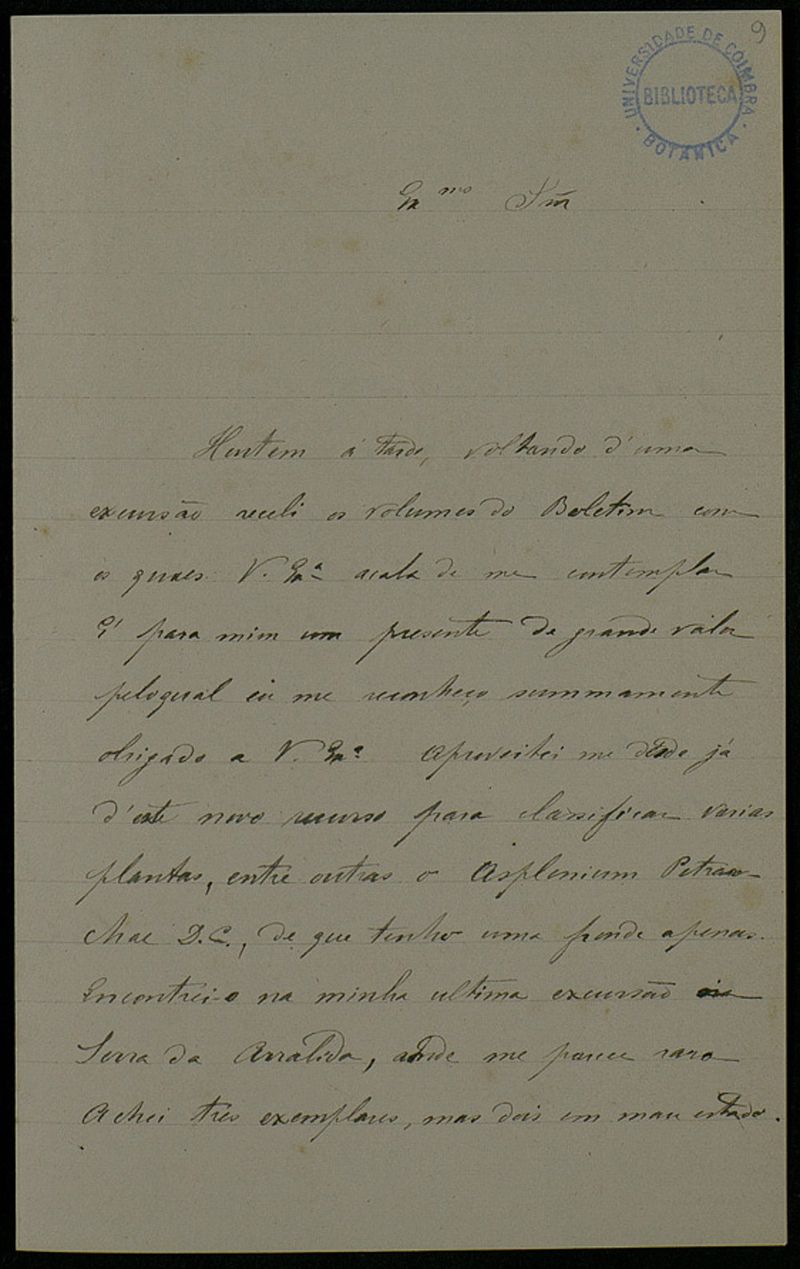 9
UNIVERSIDADE DE COIMBRA
BIBLIOTECA
BOTANICA
Ex.mo Snr
Hontem á tarde, voltando d'uma
excursão recebi os volumes do Boletim com
os quaes V. Exª acaba de me contemplar
É para mim um presente de grande valor
pelo qual eu me reconheço summamente
obrigado a V. Exª. Aproveitei me desde já
d'este novo recurso para classificar varias
plantas, entre outras o Asplenium Petrar-
chae D.C., de que tenho uma fronde apenas.
Encontrei-o na minha ultima excursão
Serra da Arrabida, onde me parece raro
Achei três exemplares, mas dois em mau estado.